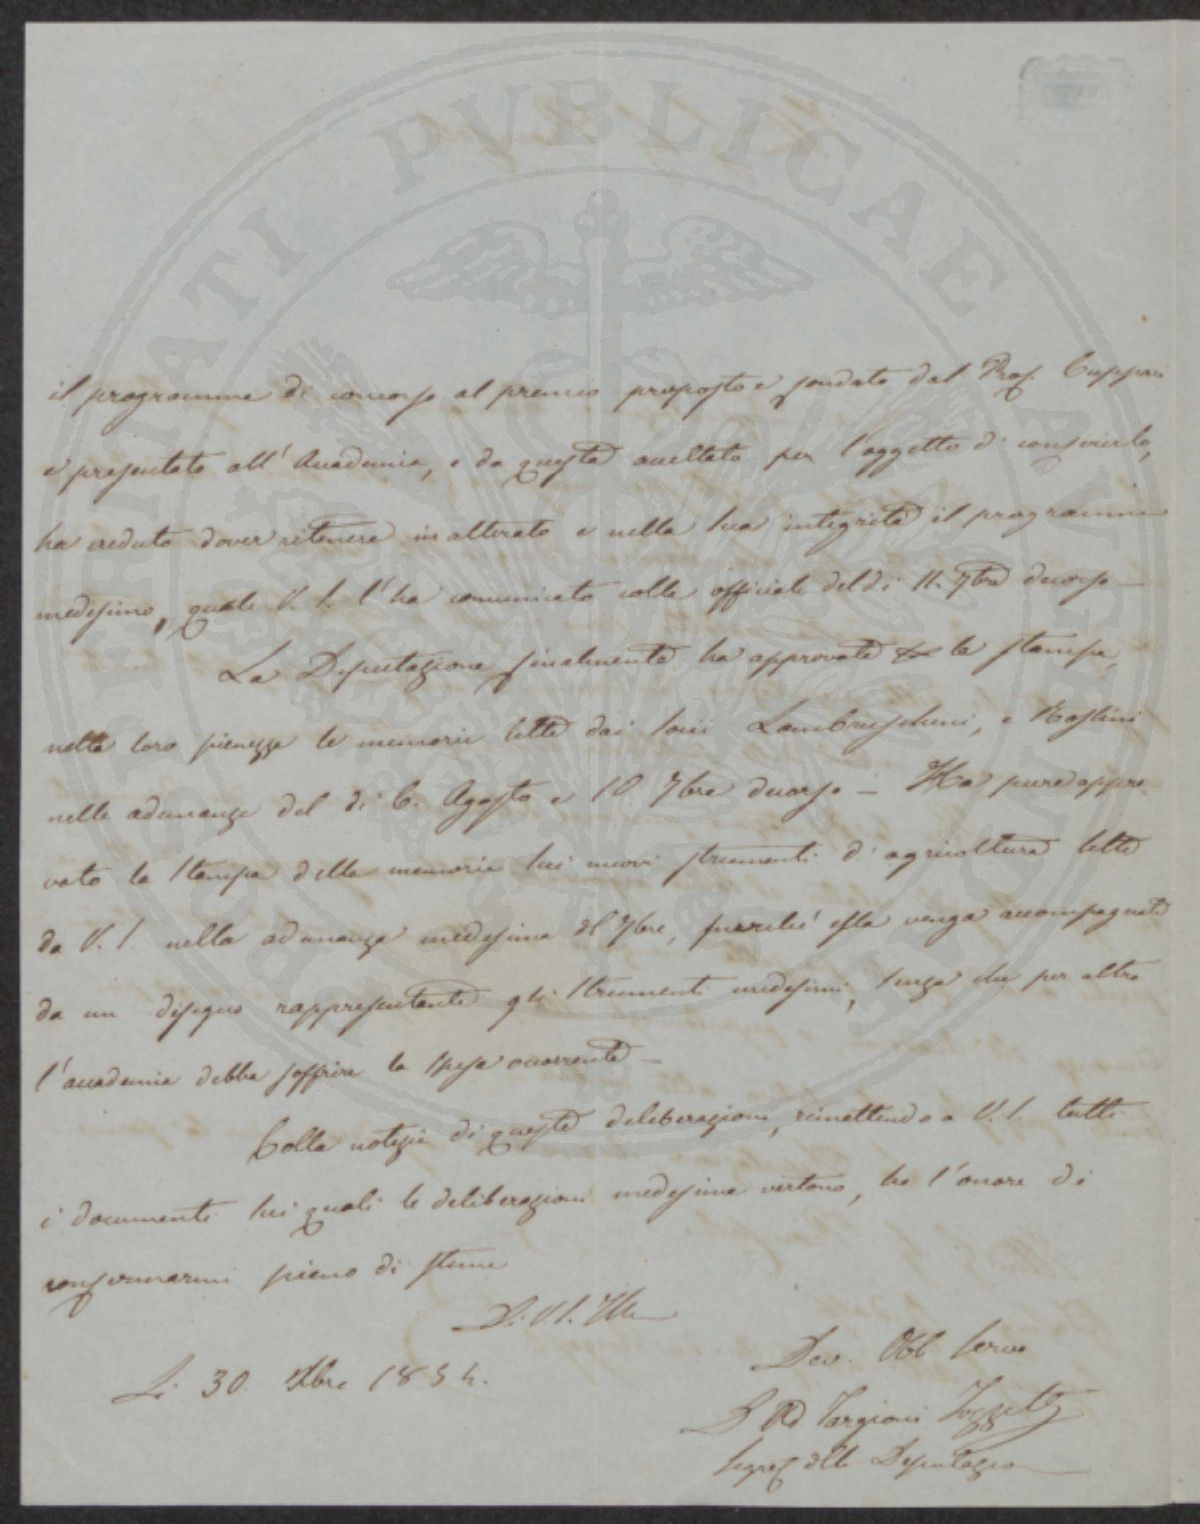 PROSPERITATI PVBLICAE AVGENDAE
il programma di concorso al premio proposto e fondato dal Prof. Cuppari
e presentato all'Accademia, e da questa accettato per l'oggetto di conferirlo,
ha creduto dover ritenere inalterato e nella sua integrità il programma
medesimo, quale V. S. l'ha comunicato colla officiale del dì 11. 7bre decorso —
La Deputazione finalmente ha approvato la stampa
nella loro pienezza le memorie lette dai Socii Lambruschini, e
nelle adunanze del dì 6. Agosto e 10 7bre decorso — Ha pure appro-
vato la stampa della memoria sui nuovi strumenti di agricoltura letta
da V. S. nella adunanza medesima del 7bre, purché essa venga accompagnata
da un disegno rappresentante gli strumenti medesimi, senza che per altro
l'accademia debba soffrire la spesa occorrente —
Colla notizia di queste deliberazioni, rimettendo a V. S. tutti
i documenti sui quali le deliberazioni medesime vertono, ho l'onore di
confermarmi pieno di stima
Di V. S. Ill
Dev. Obb Servo
Li 30 Xbre 1854.
Ad. Targioni Tozzetti
Segret della Deputazione